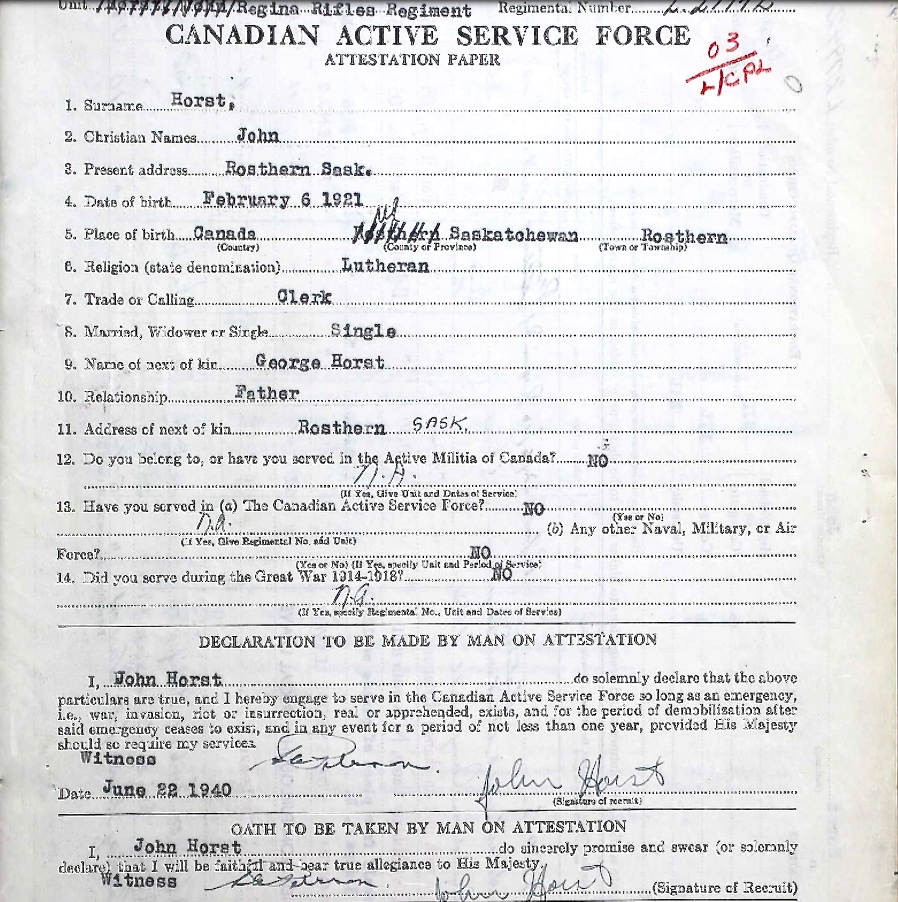 Unit Regina Rifles Regiment Regimental Number
CANADIAN ACTIVE SERVICE FORCE
ATTESTATION PAPER
03
L/CPL
1. Surname Horst,
2. Christian Names John
3. Present address Rosthern Sask.
4. Date of birth February 6 1921
5. Place of birth Canada Saskatchewan Rosthern
(Country) (County or Province) (Town or Township)
6. Religion (state denomination) Lutheran
7. Trade or Calling Clerk
8. Married, Widower or Single Single
9. Name of next of kin George Horst
10. Relationship Father
11. Address of next of kin Rosthern SASK.
12. Do you belong to, or have you served in the Active Militia of Canada? NO
N.A.
(If Yes, Give Unit and Dates of Service)
13. Have you served in (a) The Canadian Active Service Force? NO
(Yes or No)
n.a. (b) Any other Naval, Military, or Air
(If Yes, Give Regimental No. and Unit)
Force? NO
(Yes or No) (If Yes, specify Unit and Period of Service)
14. Did you serve during the Great War 1914-1918? NO
n.a.
(If Yes, specify Regimental No., Unit and Dates of Service)
DECLARATION TO BE MADE BY MAN ON ATTESTATION
I, John Horst do solemnly declare that the above
particulars are true, and I hereby engage to serve in the Canadian Active Service Force so long as an emergency,
i.e., war, invasion, riot or insurrection, real or apprehended, exists, and for the period of demobilization after
said emergency ceases to exist, and in any event for a period of not less than one year, provided His Majesty
should so require my services.
Witness
John Horst
Date June 22 1940
(Signature of recruit)
OATH TO BE TAKEN BY MAN ON ATTESTATION
I, John Horst do sincerely promise and swear (or solemnly
declare) that I will be faithful and bear true allegiance to His Majesty.
Witness John Horst (Signature of Recruit)